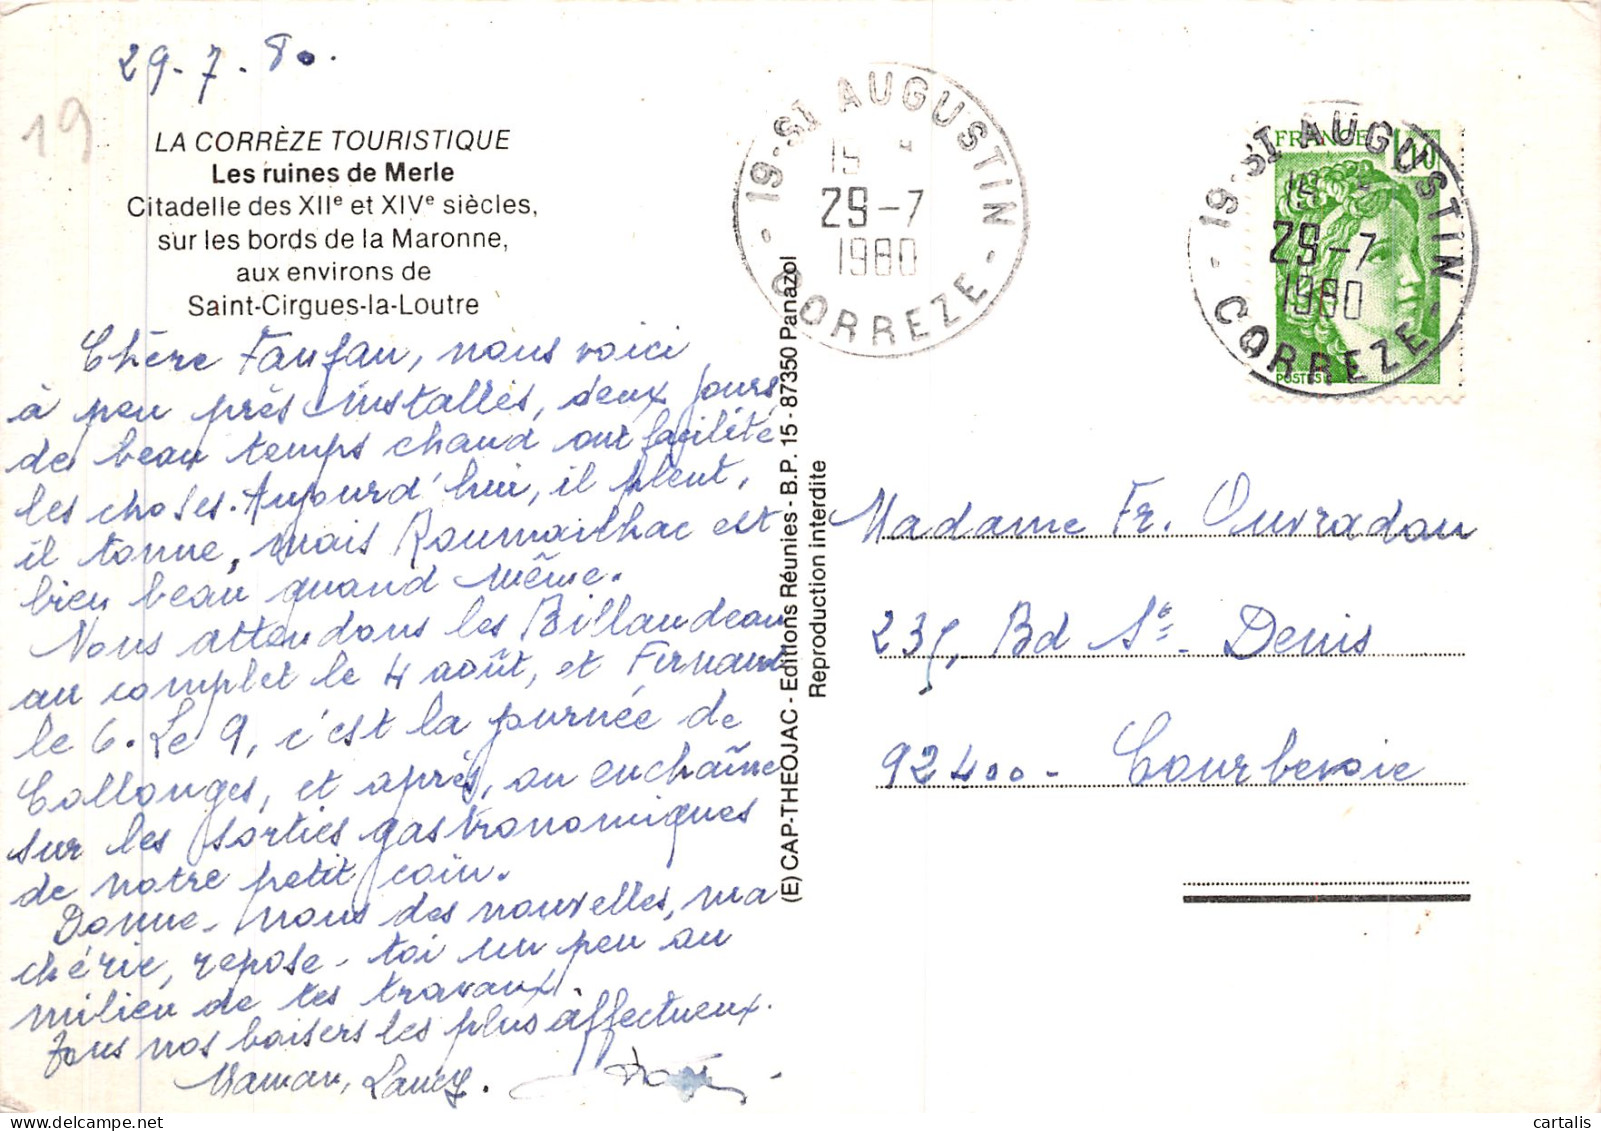 29-7-80.
19
LA CORRÈZE TOURISTIQUE
Les ruines de Merle
Citadelle des XIIe et XIVe siècles,
sur les bords de la Maronne,
aux environs de
Saint-Cirgues-la-Loutre
Chère Fanfan, nous voici
à peu près installés, deux jours
de beau temps chaud ont facilité
les choses. Aujourd'hui, il pleut,
il tonne, mais Roumailhac est
bien beau quand même.
Nous attendons les Billaudeau
au complet le 4 août, et Fernand
le 6. Le 9, c'est la journée de
Collonges, et après, on enchaîne
sur les sorties gastronomiques
de notre petit coin.
Donne-nous des nouvelles, ma
chérie, repose-toi un peu au
milieu de tes travaux.
Tous nos baisers les plus affectueux.
Maman,
(E) CAP-THEOJAC - Editions Réunies - B.P. 15 - 87350 Panazol
Reproduction interdite
19 - ST AUGUSTIN - CORREZE -
15
29-7
1980
FRANCE 1,10
POSTES
19 - ST AUGUSTIN - CORREZE -
29-7
1980
Madame Fr. Ouvradou
235, Bd St- Denis
92400 - Courbevoie
cartalis
delcampe.net